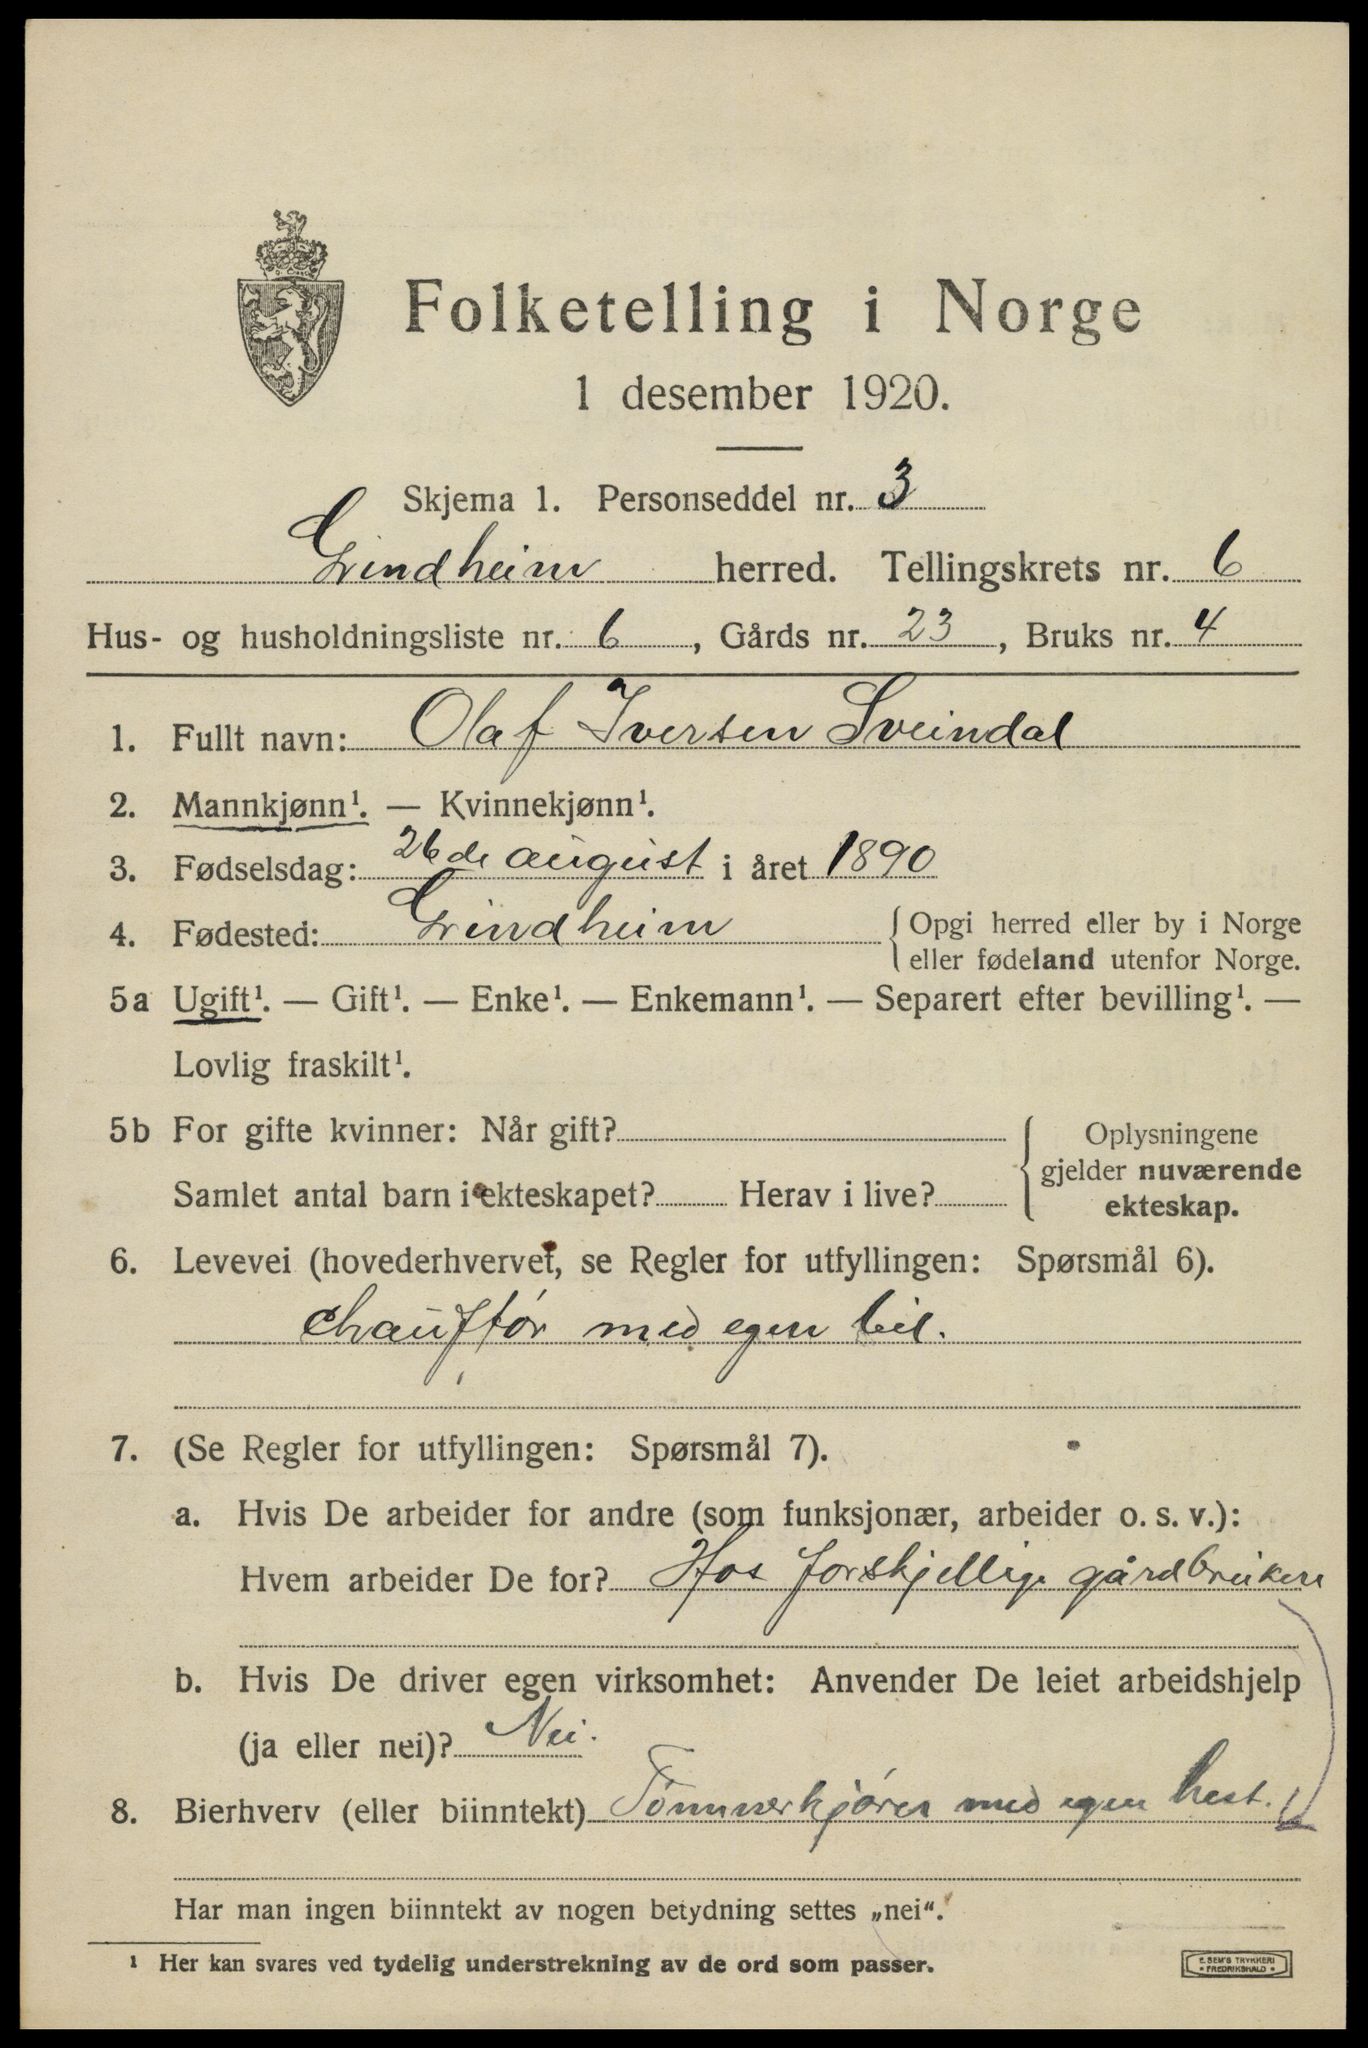 Folketelling i Norge
1 desember 1920.
Skjema 1. Personseddel nr. 3
Grindheim herred. Tellingskrets nr. 6
Hus- og husholdningsliste nr. 6, Gårds nr. 23, Bruks nr. 4
1. Fullt navn: Olaf Iversen Sveindal
2. Mannkjønn¹. — Kvinnekjønn¹.
3. Fødselsdag: 26de august i året 1890
4. Fødested: Grindheim { Opgi herred eller by i Norge
eller fødeland utenfor Norge.
5a Ugift¹. — Gift¹. — Enke¹. — Enkemann¹. — Separert efter bevilling¹. —
Lovlig fraskilt¹.
5b For gifte kvinner: Når gift? { Oplysningene
gjelder nuværende
Samlet antal barn i ekteskapet? Herav i live? ekteskap.
6. Levevei (hovederhvervet, se Regler for utfyllingen: Spørsmål 6).
chauffør med egen bil.
7. (Se Regler for utfyllingen: Spørsmål 7).
a. Hvis De arbeider for andre (som funksjonær, arbeider o. s. v.):
Hvem arbeider De for? Hos forskjellige gårdbrukere
b. Hvis De driver egen virksomhet: Anvender De leiet arbeidshjelp
(ja eller nei)? Nei.
8. Bierhverv (eller biinntekt) Tømmerkjører med egen hest.
Har man ingen biinntekt av nogen betydning settes „nei“.
¹ Her kan svares ved tydelig understrekning av de ord som passer.
E. SEM'S TRYKKERI
• FREDRIKSHALD •